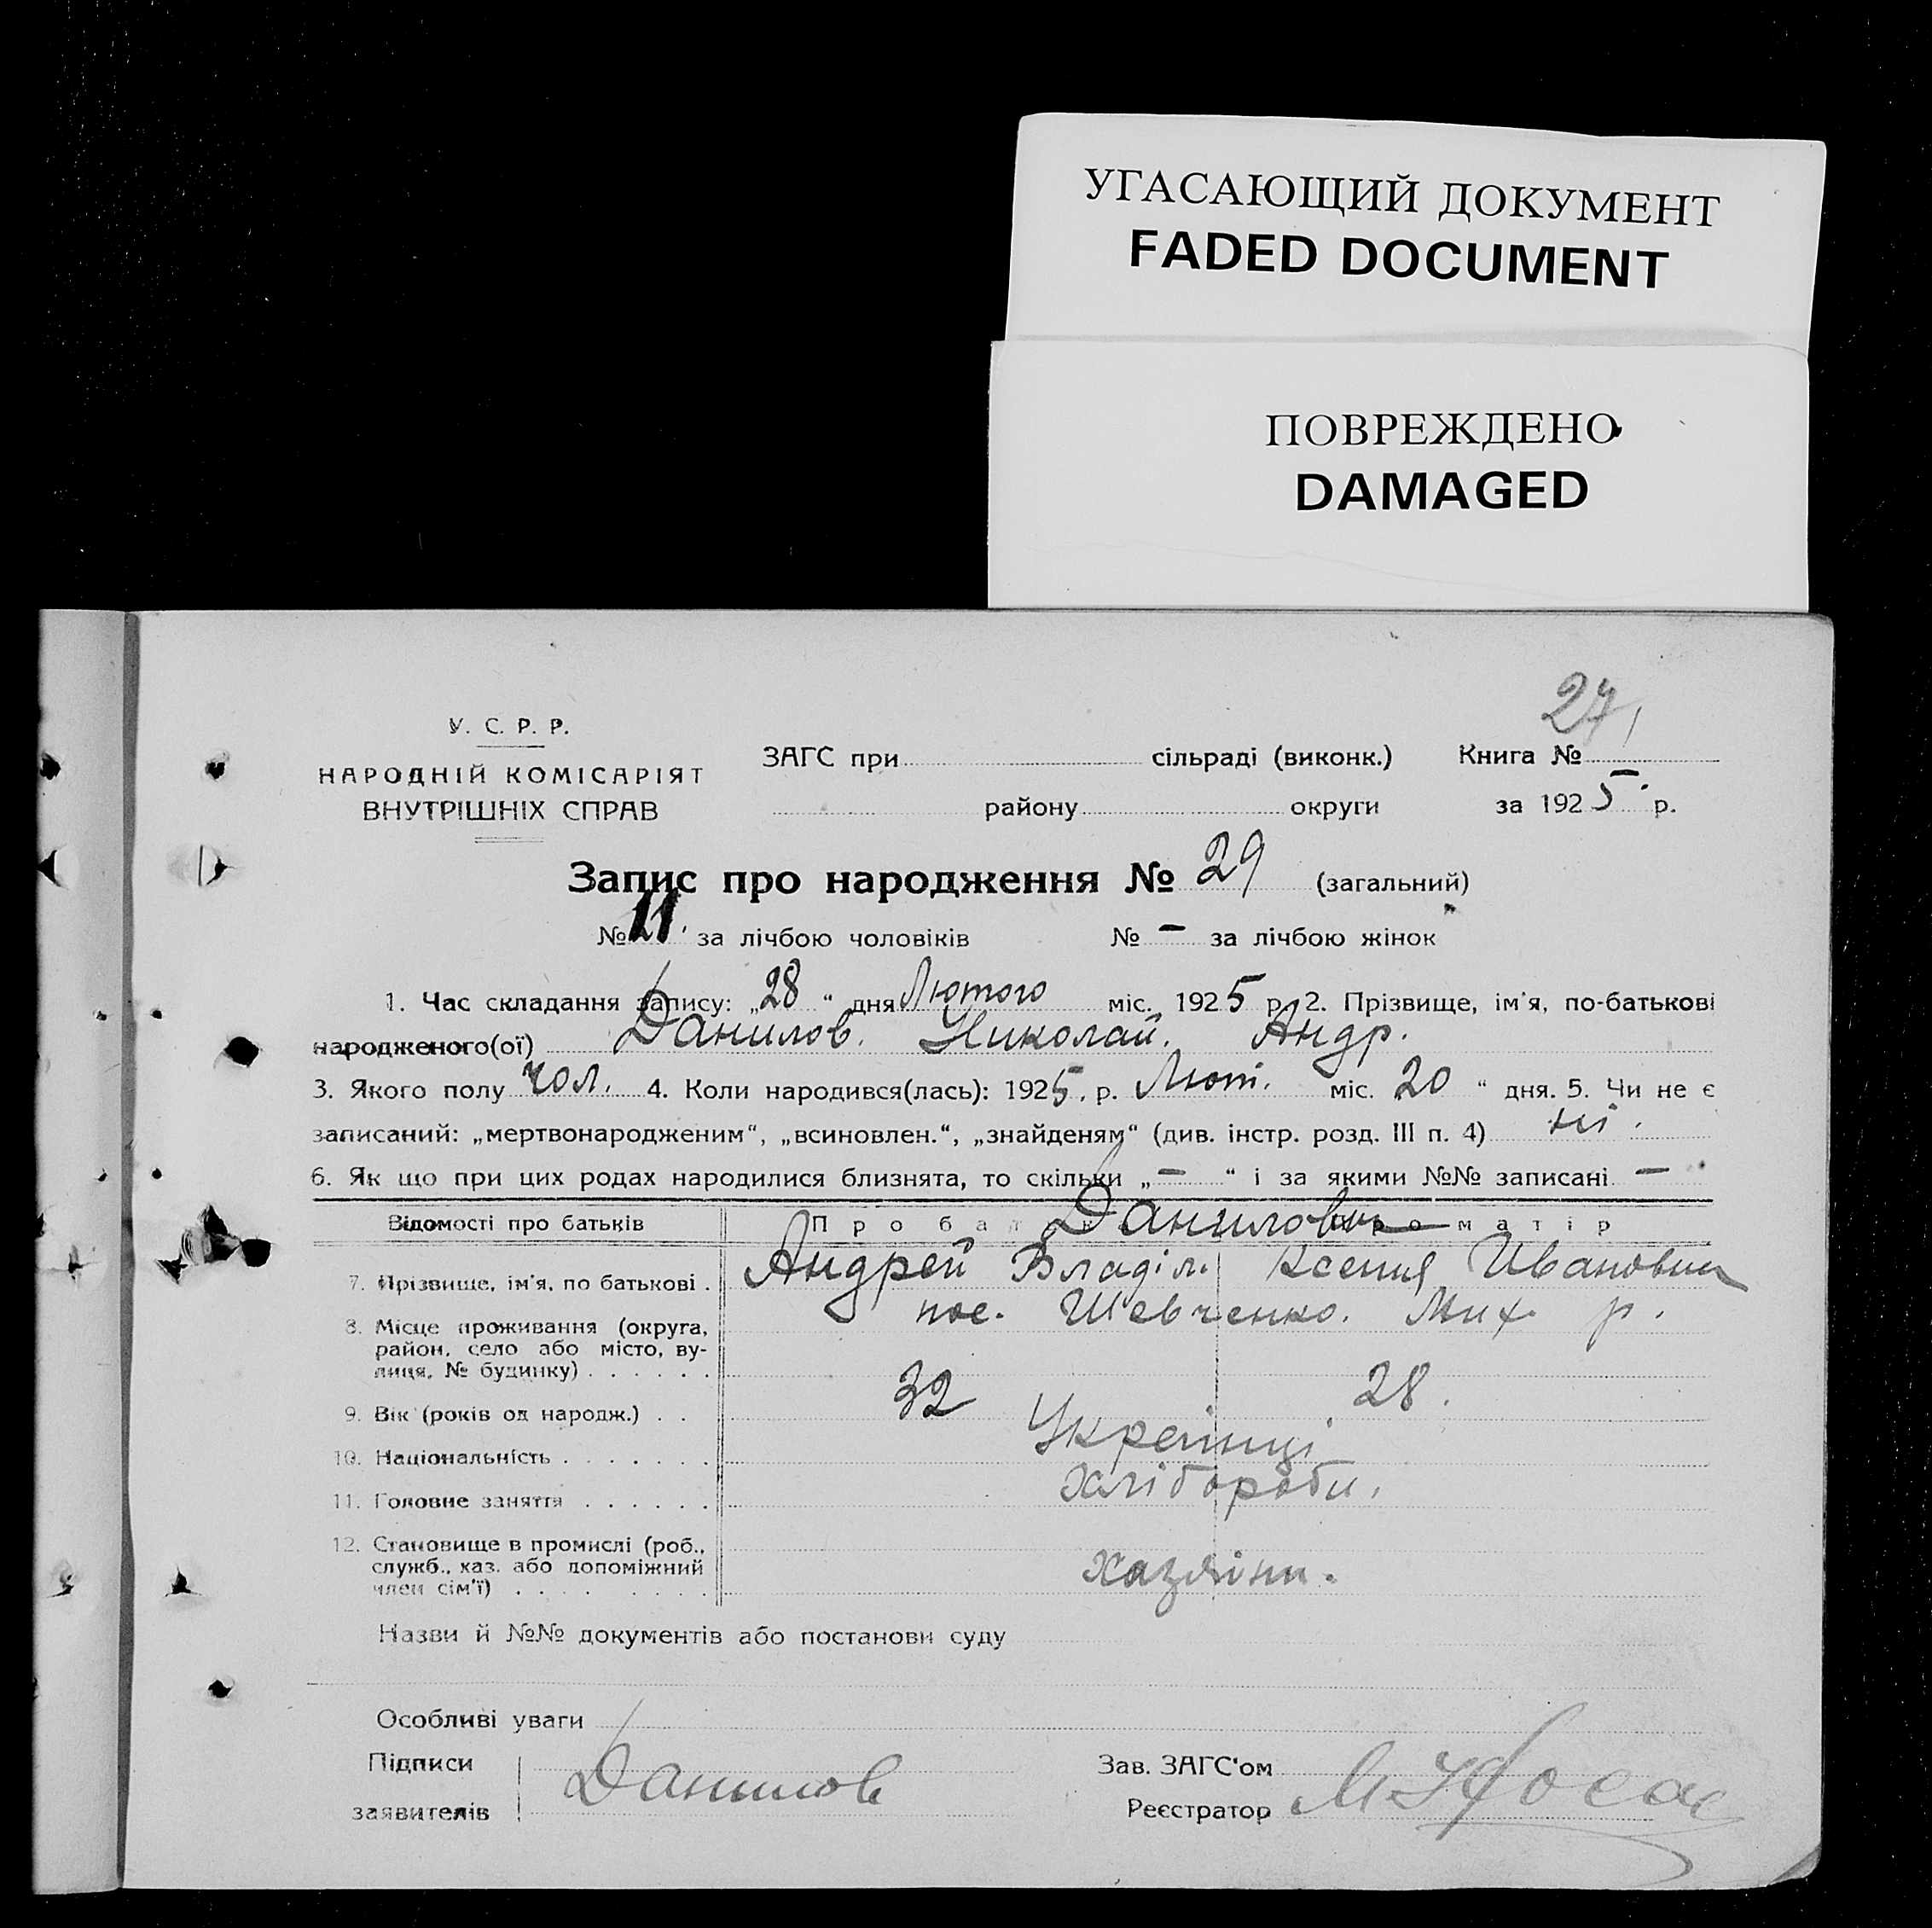 УГАСАЮЩИЙ ДОКУМЕНТ
FADED DOCUMENT
ПОВРЕЖДЕНО
DAMAGED
27
У. С. Р. Р.
НАРОДНІЙ КОМІСАРІЯТ
ВНУТРІШНІХ СПРАВ
ЗАГС при сільраді (виконк.) Книга №
району округи за 1925 р.
Запис про народження № 29 (загальний)
№ 11 за лічбою чоловіків № – за лічбою жінок
1. Час складання запису: „28“ дня Лютого міс. 1925 р. 2. Прізвище, ім'я, по-батькові
народженого(ої) Данилов. Николай. Андр.
3. Якого полу чол. 4. Коли народився(лась): 1925. р. Лют. міс. 20 “ дня. 5. Чи не є
записаний: „мертвонародженим“, „всиновлен.“, „знайденям“ (див. інстр. розд. III п. 4) ні.
6. Як що при цих родах народилися близнята, то скільки „–“ і за якими №№ записані –
Відомості про батьків Про батька Про матір
Данилови
7. Прізвище, ім'я, по батькові . Андрей Владіл. Ксения Ивановна
8. Місце проживання (округа, пос. Шевченко. Мих р.
район, село або місто, ву-
лиця, № будинку) . . . . . .
9. Вік (років од народж.) . . 32 28.
10. Національність . . . . . . . Українці
11. Головне заняття . . . . . . Хлібороби.
12. Становище в промислі (роб.,
служб., хаз. або допоміжний хазяіни.
член сім'ї) . . . . . . . .
Назви й №№ документів або постанови суду
Особливі уваги
Підписи
заявителів Данилов
Зав. ЗАГС'ом
Реєстратор